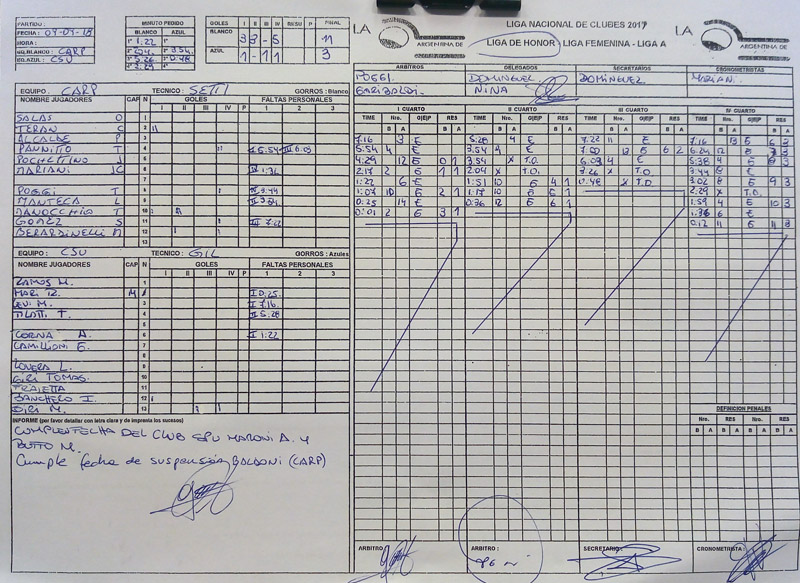 PARTIDO :
FECHA : 04-04-18
HORA :
EQ.BLANCO: CARP
EQ.AZUL: CSU
MINUTO PEDIDO
BLANCO AZUL
GOLES I II III IV RESU P FINAL
BLANCO 3 3 - 5 11
AZUL 1 - 1 1 3
LIGA NACIONAL DE CLUBES 2017
LIGA DE HONOR LIGA FEMENINA - LIGA A
LA ARGENTINA DE
LA ARGENTINA DE
ARBITROS DELEGADOS SECRETARIOS CRONOMETRISTAS
POGGI. DOMINGUEZ DOMINGUEZ MARIAN.
GARIBALDI. NINA
EQUIPO : CARP TECNICO : SETTI GORROS: Blanco
NOMBRE JUGADORES CAP N GOLES FALTAS PERSONALES
I II III IV P 1 2 3
SALAS O 1
TERAN C 2
ALCALDE P 3
PANNITTO T 4
POCHETTINO J 5
MARIANI JC 6
7
POGGI T 8
MANTECA L 9
DANOCCHIO T 10
GOMEZ S 11
BERARDINELLI M 12
13
EQUIPO : CSU TECNICO : GIL GORROS: Azules
NOMBRE JUGADORES CAP N GOLES FALTAS PERSONALES
I II III IV P 1 2 3
RAMOS M.
I 0.25
LEVI M. 3 II 7.16
TILATTI T. 4 II 5.28
5
CORNA A. 6 I 1:22
CAMILLIONI E. 7
8
LOVERA L. 9
GIRI TOMAS. 10
11
BANCHERO I. 12
GIRI M. 13
INFORME (por favor detallar con letra clara y de imprenta los sucesos)
CUMPLEN FECHA DEL CLUB GEU MARONI A. Y
BUTTO M.
Cumple fecha de suspensión BALDONI (CARP)
I CUARTO II CUARTO III CUARTO IV CUARTO
TIME Nro. O|E|P RES TIME Nro. O|E|P RES TIME Nro. O|E|P RES TIME Nro. O|E|P RES
B A B A B A B A B A B A B A B A
7.16 3 E 5:28 4 E 7.22 11 E 7.16 13 E 6 3
5:54 4 E 3.54 4 E
4:29 12 E 0 1 3.54 X T.O. 6.09 4 E 5:38 4 E
2.17 2 E 1 1 2.04 X T.O. X T.O. 8 E
1:22 6 E 1:51 10 E 4 1 0.48 X T.O 3.02 8 E 9 3
1:07 10 E 2 1 1:17 10 E 5 1 2.29 X T.O.
0:25 14 E 0:36 12 E 6 1 1:59 4 E 10 3
0:01 2 E 3 1 6 E
0.12 11 E 11 3
DEFINICION PENALES
Nro. RES Nro. RES
B A B A B A B A
ARBITRO : ARBITRO : SECRETARIO : CRONOMETRISTA :